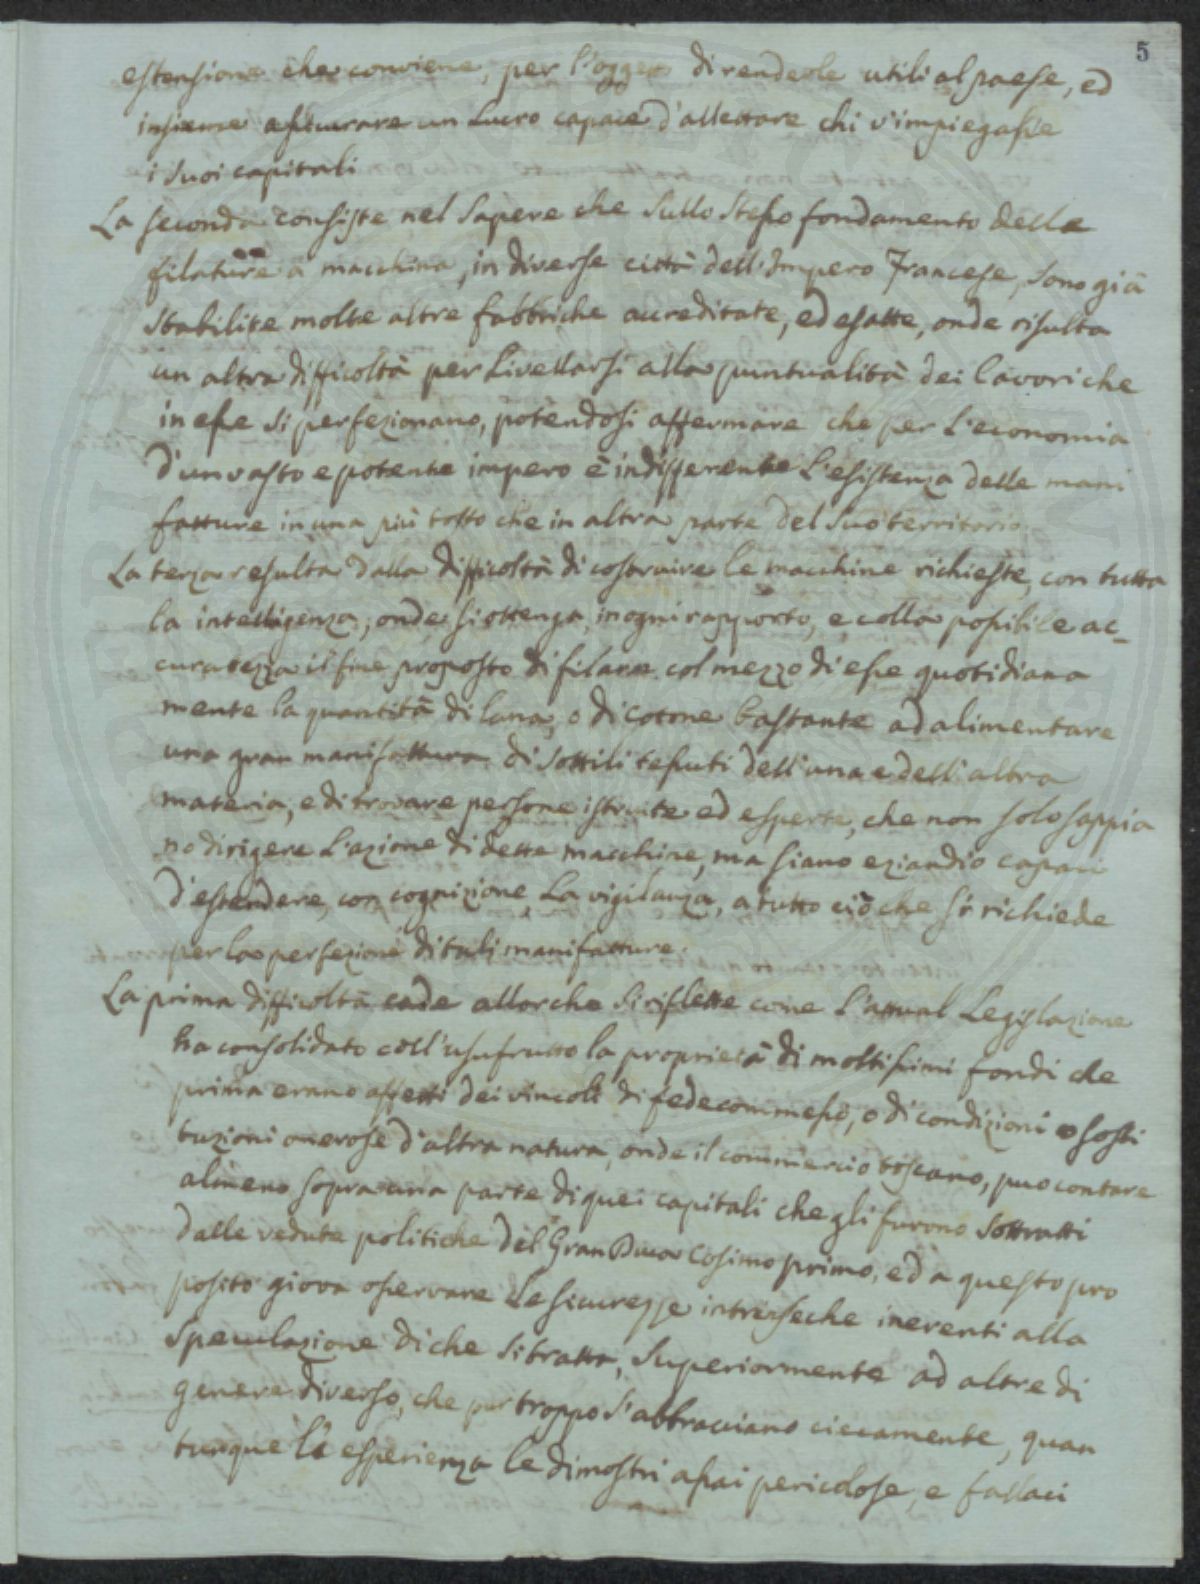 5
estensione che conviene, per l'oggetto di renderle utili al paese, ed
insieme assicurare un Lucro capace d'allettare chi v'impiegasse
i suoi capitali
La seconda consiste nel sapere che sullo stesso fondamento delle
filature a macchina, in diverse città dell'Impero Francese, sono già
stabilite molte altre fabbriche accreditate, ed esatte, onde risulta
un altra difficoltà per Livellarsi alla puntualità dei lavori che
in esse si perfezionano, potendosi affermare che per l'economia
d'un vasto e potente impero è indifferente L'esistenza delle mani
fatture in una più tosto che in altra parte del suo territorio
La terza resulta dalla difficoltà di costruire le macchine richieste, con tutta
la intelligenza, onde si ottenga, in ogni rapporto, e colla possibile ac-
curatezza il fine proposto di filare col mezzo di esse quotidiana
mente la quantità di lana, o di cotone bastante ad alimentare
una gran manifattura di sottili tessuti dell'una e dell'altra
materia, e di trovare persone istruite ed esperte, che non solo sappia
no dirigere L'azione di dette macchine, ma siano eziandio capaci
d'estendere, con cognizione, La vigilanza, a tutto ciò che si richiede
per la perfezione di tali manifatture.
La prima difficoltà cade allorche si riflette come l'attual Legislazione
ha consolidato coll'usufrutto la proprietà di moltissimi fondi che
prima erano affetti dei vincoli di fedecommesso, o di condizioni o sosti
tuzioni onerose d'altra natura, onde il commercio toscano, può contare
almeno sopra una parte di quei capitali che gli furono sottratti
dalle vedute politiche del Gran Duca Cosimo primo, ed a questo pro
posito giova osservare Le sicurezze intrinseche inerenti alla
speculazione di che si tratta, superiormente ad altre di
genere diverso, che pur troppo s'abbracciano ciecamente, quan
tunque la esperienza le dimostri assai pericolose, e fallaci